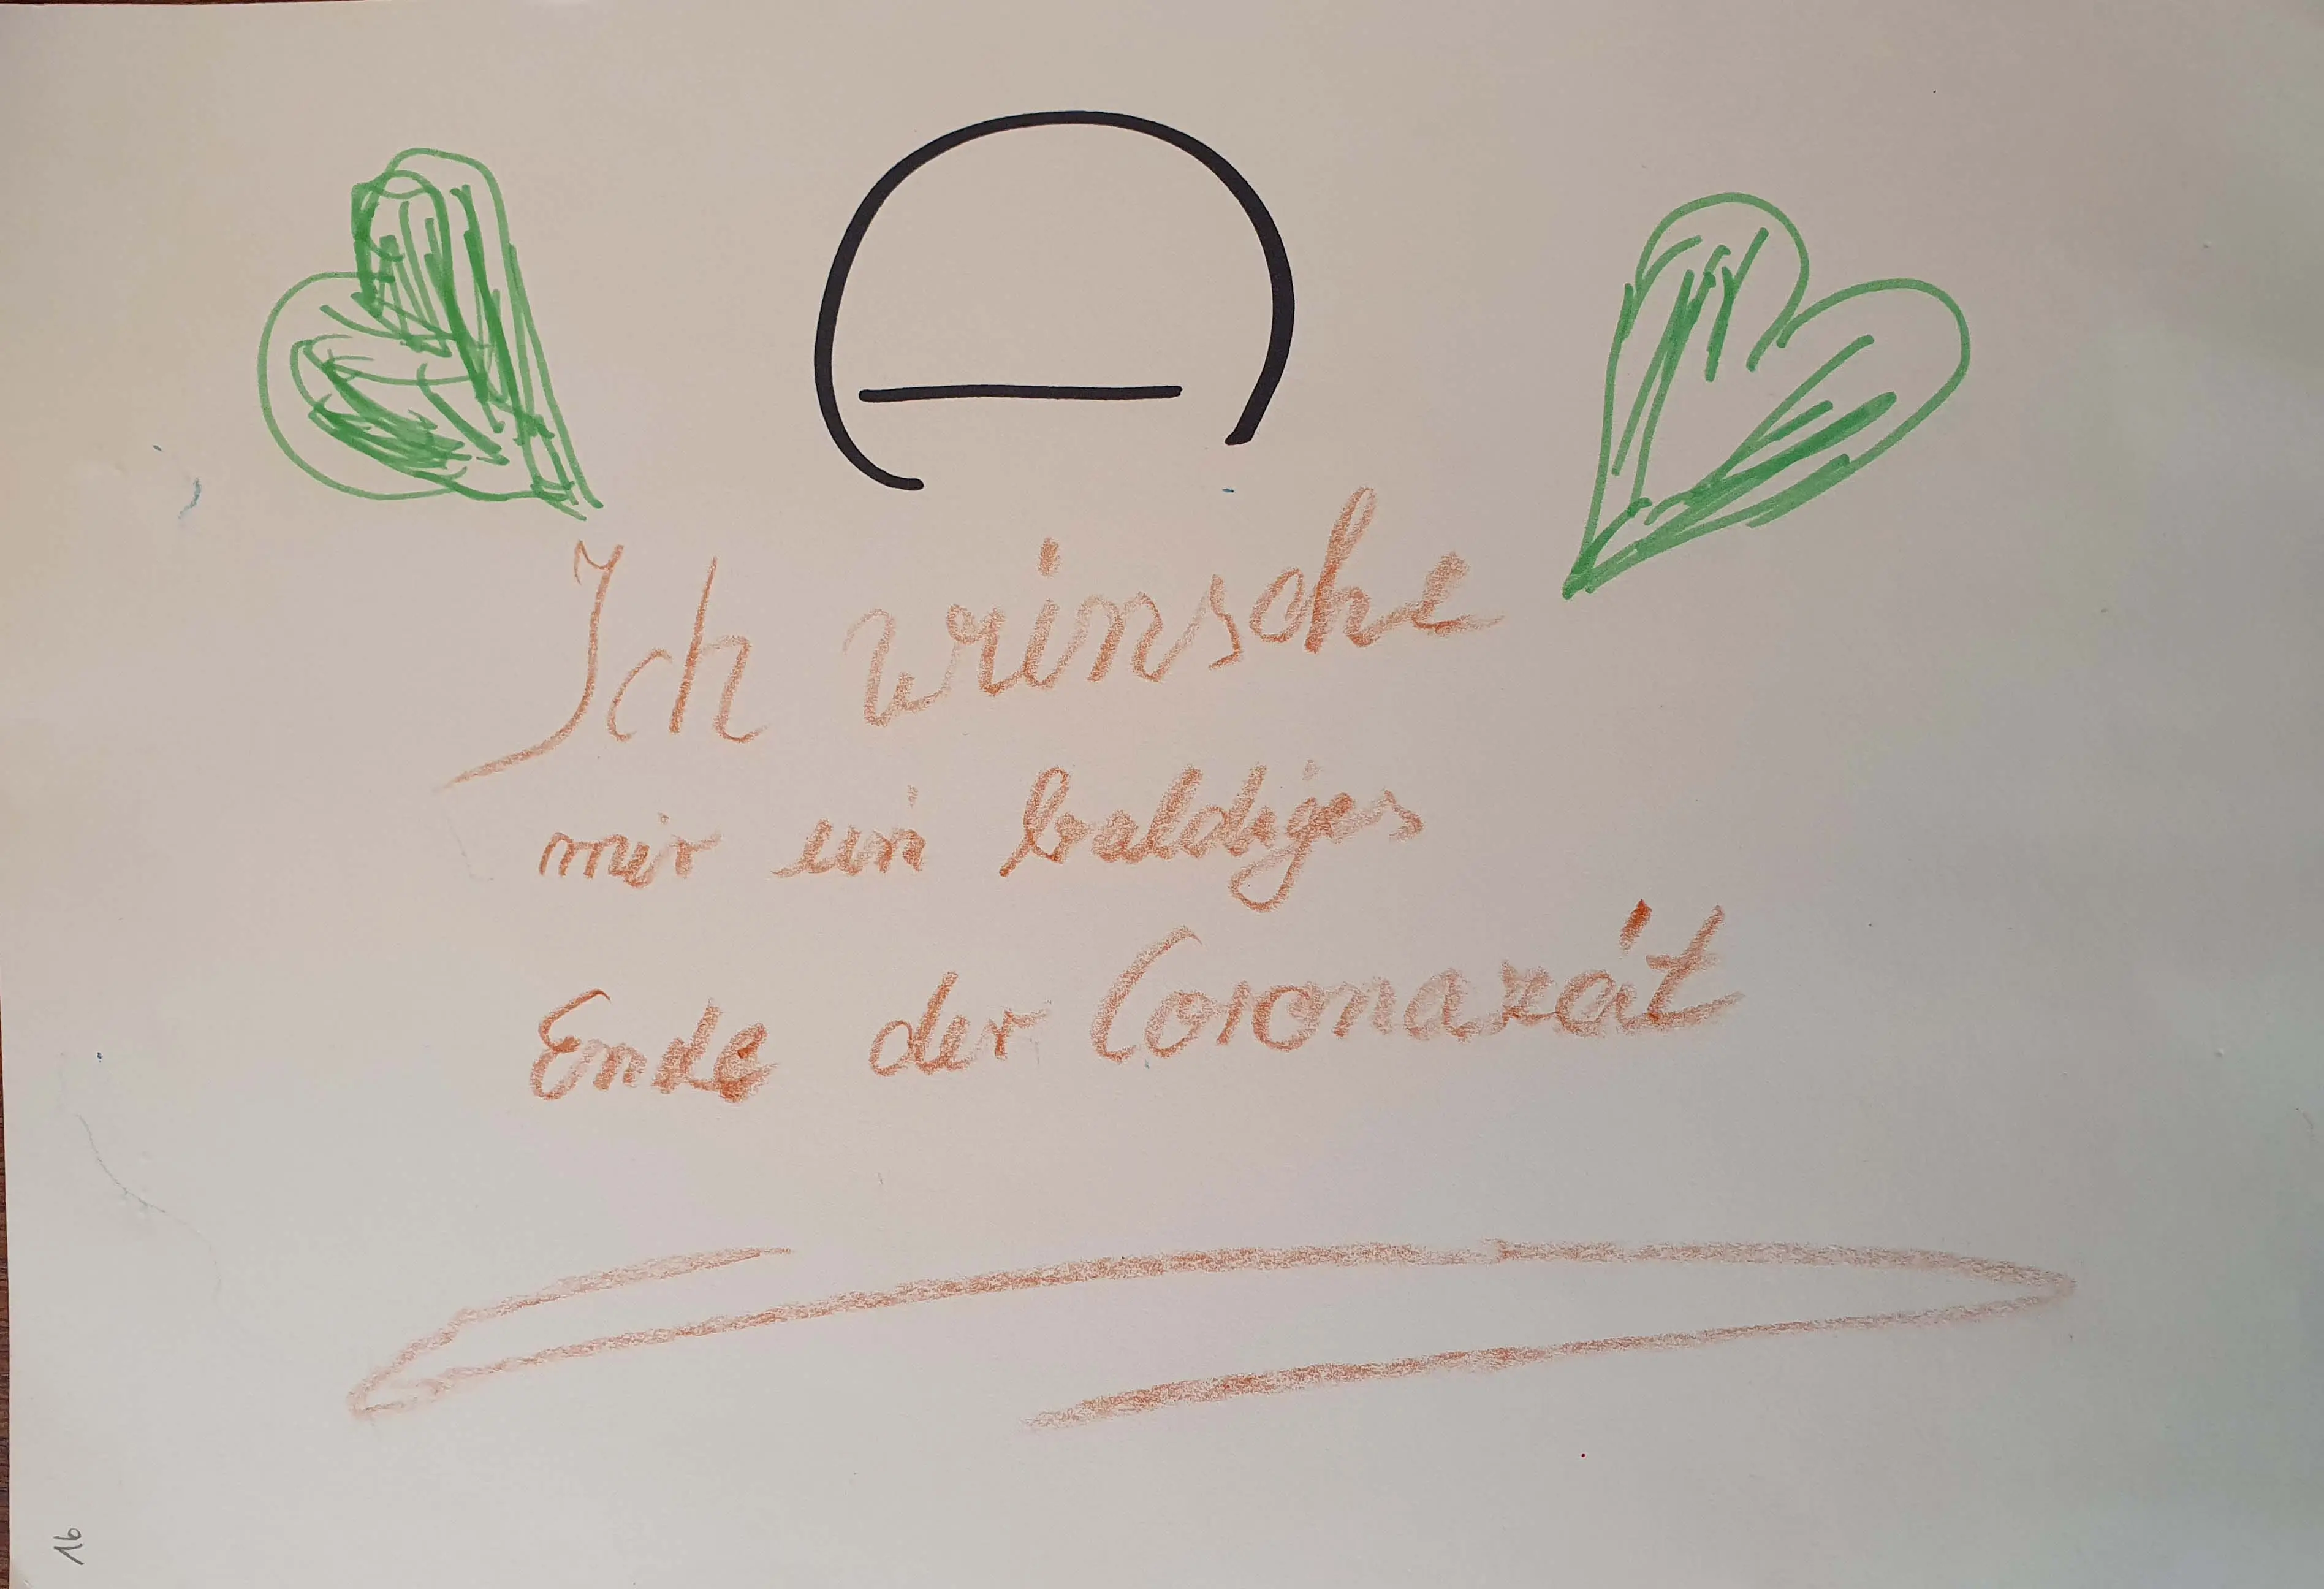 Ich wünsche
mir ein baldiges
Ende der Coronazeit
16